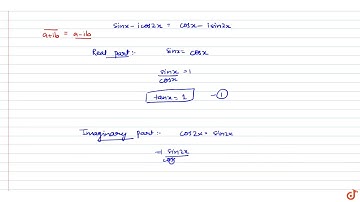 sinx - i cos2x = cosx - i sin2x
a+ib = a-ib
Real part :- sinx = cosx
sinx/cosx = 1
tanx = 1 - ①
Imaginary part :- cos2x = sin2x
sin2x
cos
doubtnut